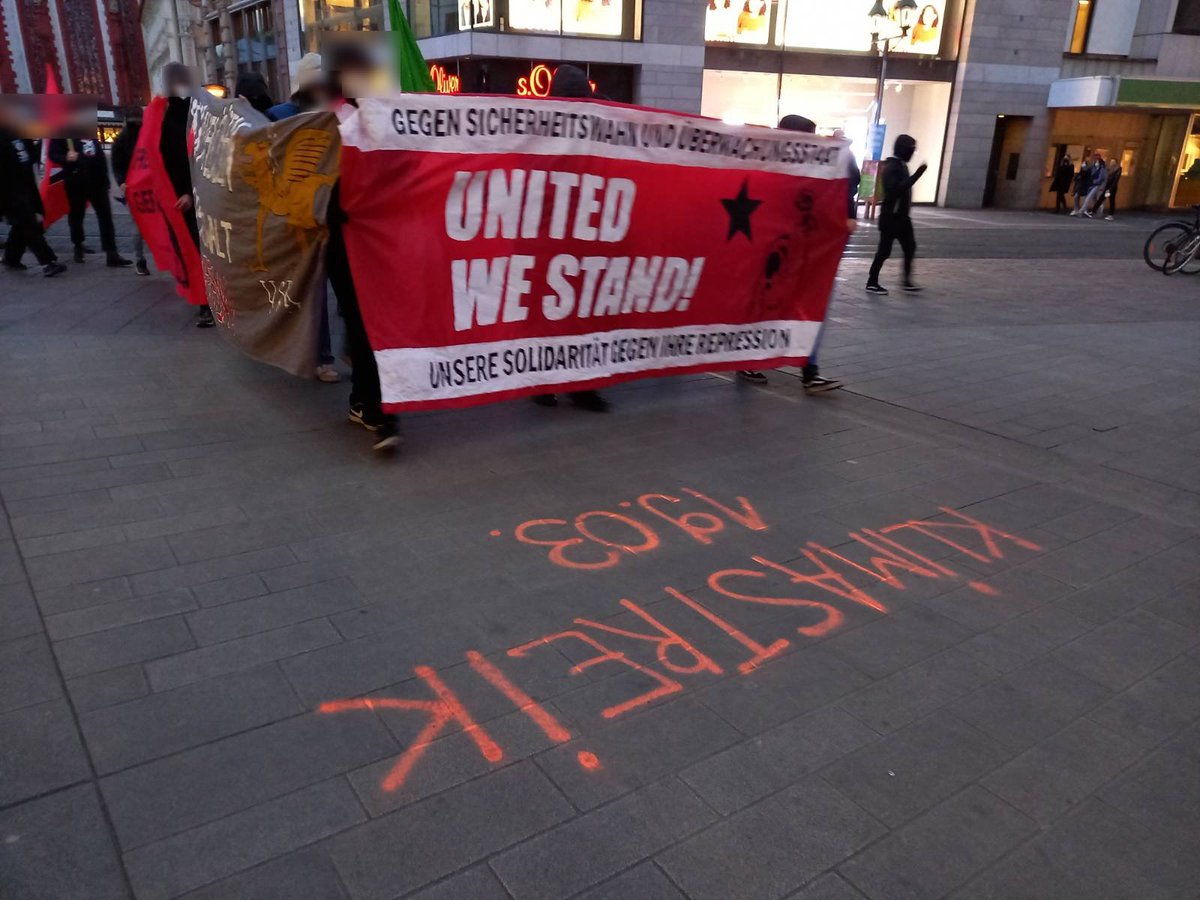 s.Oliver
GEGEN SICHERHEITSWAHN UND ÜBERWACHUNGSSTAAT
UNITED
WE STAND!
UNSERE SOLIDARITÄT GEGEN IHRE REPRESSION
KLIMASTREIK
19.03.